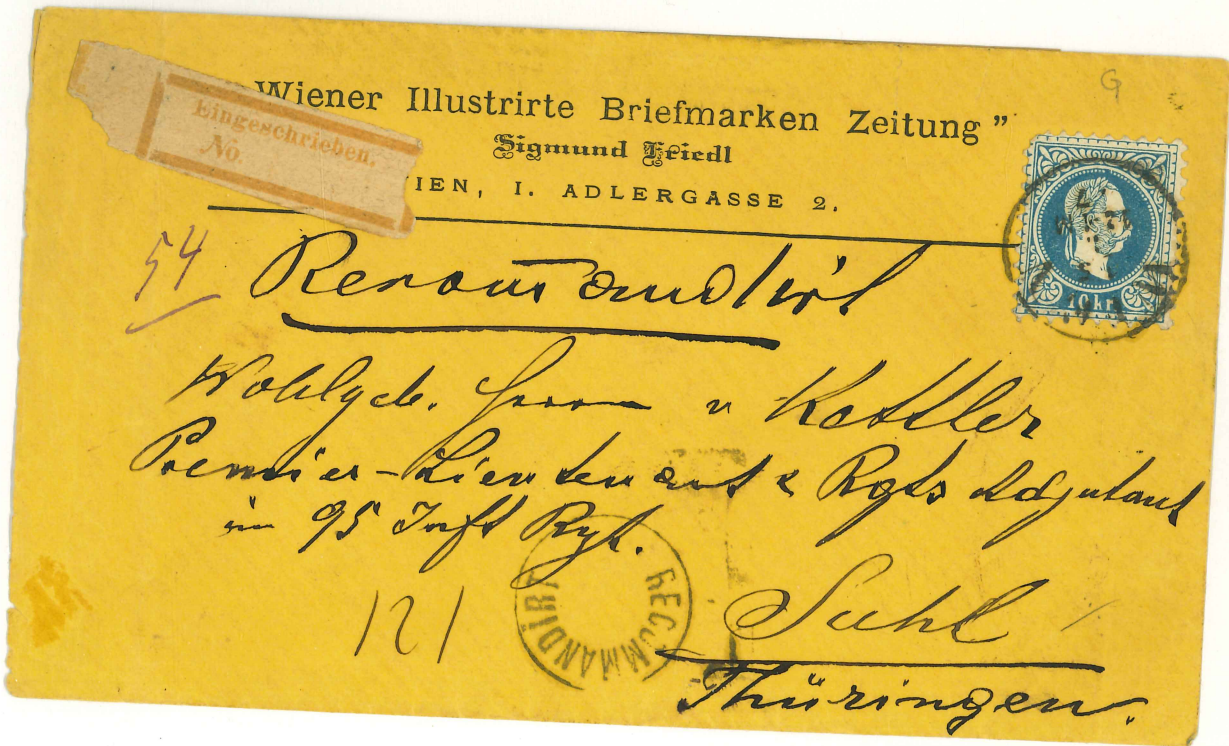 G
"Wiener Illustrirte Briefmarken Zeitung"
Sigmund Friedl
IEN, I. ADLERGASSE 2.
Eingeschrieben.
No.
10 kr.
54
Recommandirt
Wohlgeb. Herrn v Kettler
Premier-Lieutenant & Rgts Adjutant
im 95 Inft Rgt.
RECOMMANDIRT
121
Suhl
Thüringen.